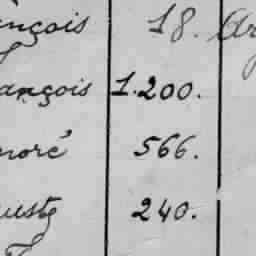 ançois 18. Ar
ançois 1.200.
noré 566.
uste 240.